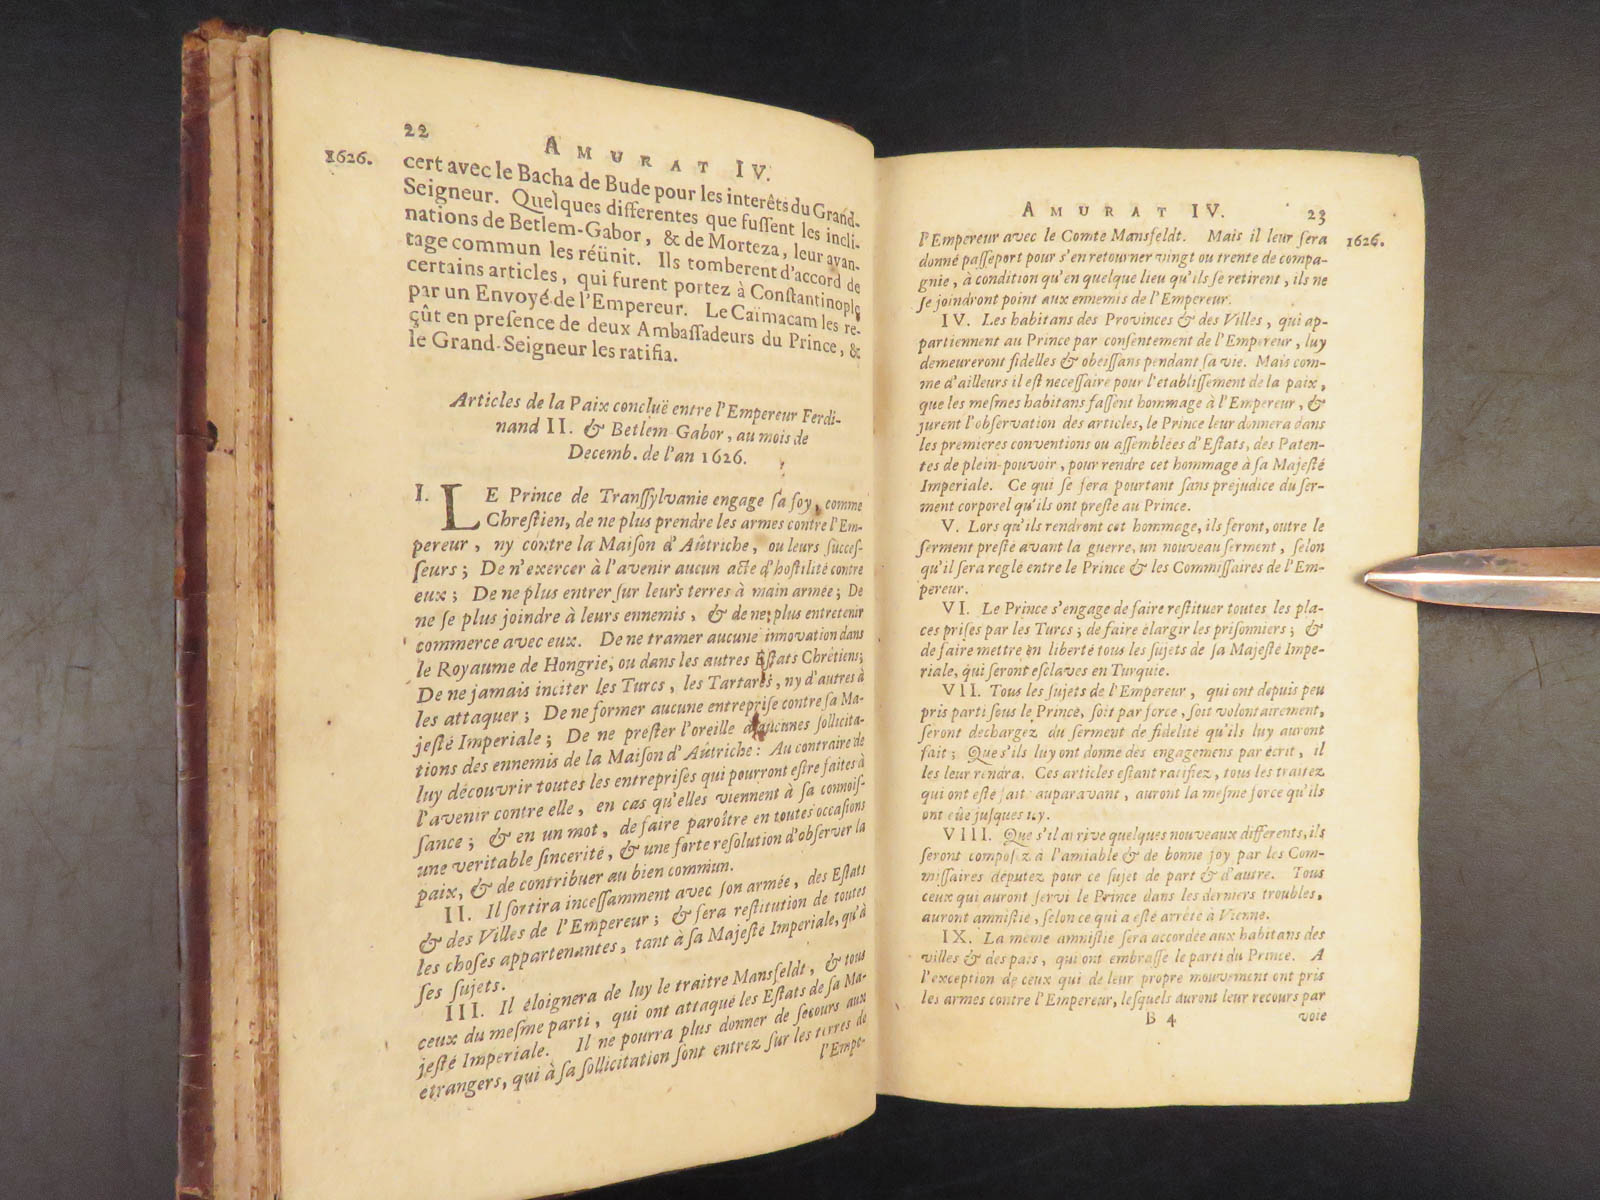 22
AMURAT IV.
1626.
cert avec le Bacha de Bude pour les interêts du Grand-
Seigneur. Quelques differentes que fuſſent les incli-
nations de Betlem-Gabor, & de Morteza, leur avan-
tage commun les réünit. Ils tomberent d'accord de
certains articles, qui furent portez à Conſtantinople
par un Envoyé de l'Empereur. Le Caïmacam les re-
çût en preſence de deux Ambaſſadeurs du Prince, &
le Grand-Seigneur les ratifia.
Articles de la Paix concluë entre l'Empereur Ferdi-
nand II. & Betlem Gabor, au mois de
Decemb. de l'an 1626.
I. LE Prince de Tranſſylvanie engage ſa foy, comme
Chreſtien, de ne plus prendre les armes contre l'Em-
pereur, ny contre la Maiſon d'Aûtriche, ou leurs ſucceſ-
ſeurs; De n'exercer à l'avenir aucun acte d'hoſtilité contre
eux; De ne plus entrer ſur leurs terres à main armée; De
ne ſe plus joindre à leurs ennemis, & de ne plus entretenir
commerce avec eux. De ne tramer aucune innovation dans
le Royaume de Hongrie, ou dans les autres Eſtats Chrêtiens;
De ne jamais inciter les Turcs, les Tartares, ny d'autres à
les attaquer; De ne former aucune entrepriſe contre ſa Ma-
jeſté Imperiale; De ne preſter l'oreille à aucunes ſollicita-
tions des ennemis de la Maiſon d'Aûtriche: Au contraire de
luy découvrir toutes les entrepriſes qui pourront eſtre faites à
l'avenir contre elle, en cas qu'elles viennent à ſa connoiſ-
ſance; & en un mot, de faire paroître en toutes occaſions
une veritable ſincerité, & une forte reſolution d'obſerver la
paix, & de contribuer au bien commun.
II. Il ſortira inceſſamment avec ſon armée, des Eſtats
& des Villes de l'Empereur; & ſera reſtitution de toutes
les choſes appartenantes, tant à ſa Majeſté Imperiale, qu'à
ſes ſujets.
III. Il éloignera de luy le traitre Mansfeldt, & tous
ceux du meſme parti, qui ont attaqué les Eſtats de ſa Ma-
jeſté Imperiale. Il ne pourra plus donner de ſecours aux
étrangers, qui à ſa ſollicitation ſont entrez ſur les terres de
l'Empe-
AMURAT IV. 23
1626.
l'Empereur avec le Comte Mansfeldt. Mais il leur ſera
donné paſſeport pour s'en retourner vingt ou trente de compa-
gnie, à condition qu'en quelque lieu qu'ils ſe retirent, ils ne
ſe joindront point aux ennemis de l'Empereur.
IV. Les habitans des Provinces & des Villes, qui ap-
partiennent au Prince par conſentement de l'Empereur, luy
demeureront fidelles & obeiſſans pendant ſa vie. Mais com-
me d'ailleurs il eſt neceſſaire pour l'etabliſſement de la paix,
que les meſmes habitans faſſent hommage à l'Empereur, &
jurent l'obſervation des articles, le Prince leur donnera dans
les premieres conventions ou aſſemblées d'Eſtats, des Paten-
tes de plein-pouvoir, pour rendre cet hommage à ſa Majeſté
Imperiale. Ce qui ſe fera pourtant ſans prejudice du ſer-
ment corporel qu'ils ont preſte au Prince.
V. Lors qu'ils rendront cet hommage, ils feront, outre le
ſerment preſté avant la guerre, un nouveau ſerment, ſelon
qu'il ſera reglé entre le Prince & les Commiſſaires de l'Em-
pereur.
VI. Le Prince s'engage de faire reſtituer toutes les pla-
ces priſes par les Turcs; de faire élargir les priſonniers; &
de faire mettre en liberté tous les ſujets de ſa Majeſté Impe-
riale, qui ſeront eſclaves en Turquie.
VII. Tous les ſujets de l'Empereur, qui ont depuis peu
pris parti ſous le Prince, ſoit par force, ſoit volontairement,
ſeront dechargez du ſerment de fidelité qu'ils luy auront
fait; Que s'ils luy ont donné des engagemens par écrit, il
les leur rendra. Ces articles eſtant ratifiez, tous les traitez
qui ont eſté fait auparavant, auront la meſme force qu'ils
ont eûe juſques icy.
VIII. Que s'il arrive quelques nouveaux differents, ils
ſeront compoſez à l'amiable & de bonne foy par les Com-
miſſaires députez pour ce ſujet de part & d'autre. Tous
ceux qui auront ſervi le Prince dans les derniers troubles,
auront amniſtie, ſelon ce qui a eſté arrêté à Vienne.
IX. La même amniſtie ſera accordée aux habitans des
villes & des païs, qui ont embraſſe le parti du Prince. A
l'exception de ceux qui de leur propre mouvement ont pris
les armes contre l'Empereur, leſquels auront leur recours par
B 4 voie